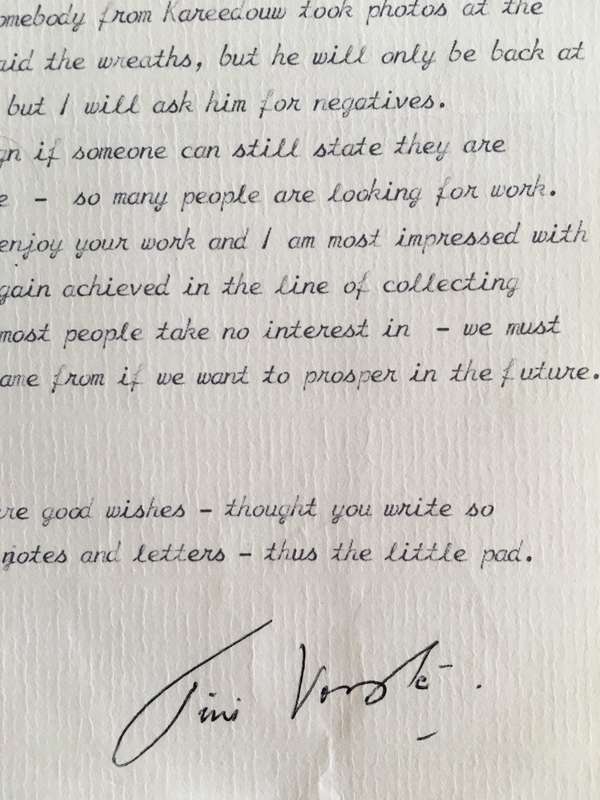 omebody from Kareedouw took photos at the
aid the wreaths, but he will only be back at
but I will ask him for negatives.
gn if someone can still state they are
e - so many people are looking for work.
enjoy your work and I am most impressed with
gain achieved in the line of collecting
most people take no interest in - we must
ame from if we want to prosper in the future.
re good wishes - thought you write so
notes and letters - thus the little pad.
Tini Vorster